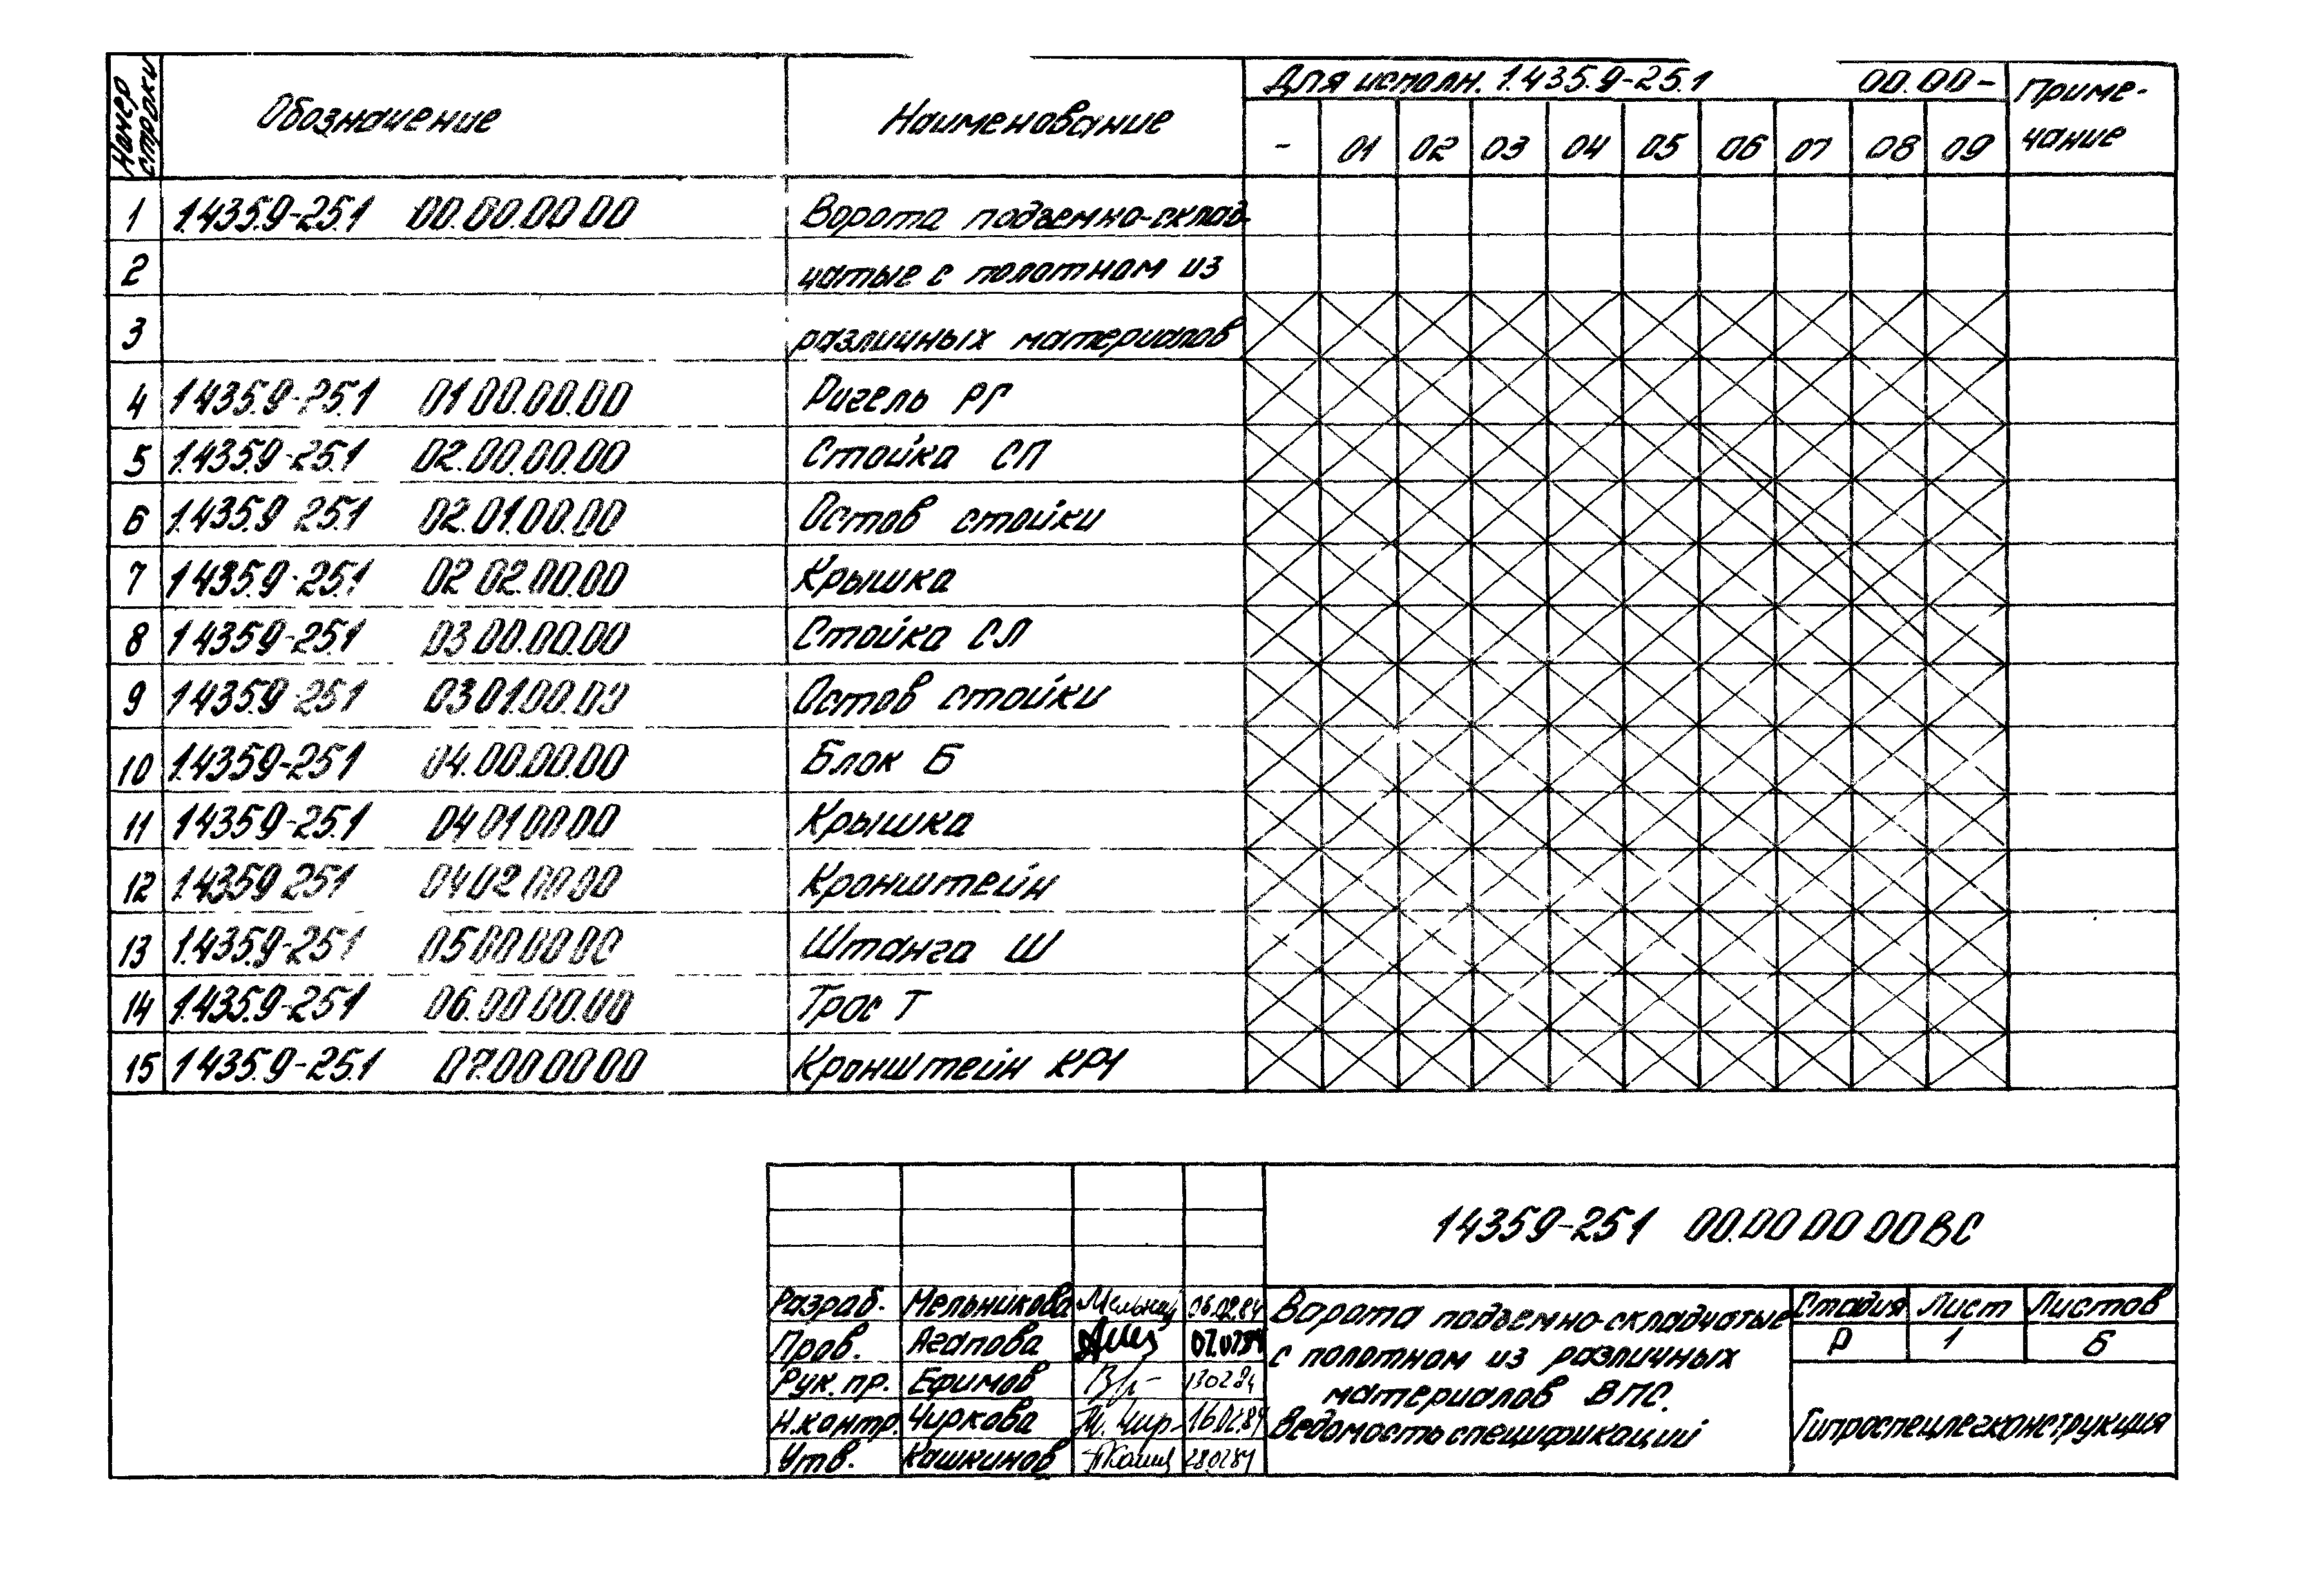 Номер строки Обозначение Наименование Для исполн. 1.435.9-25.1 00.00- Примечание
- 01 02 03 04 05 06 07 08 09
1 1.435.9-25.1 00.00.00 00 Ворота подъемно-склад-
2 чатые с полотном из
3 различных материалов
4 1 435.9-25.1 01 00.00.00 Ригель РГ
5 1.435.9-25.1 02.00.00.00 Стойка СП
6 1.435.9 25.1 02.01.00.00 Остов стойки
7 1 435.9-25.1 02 02.00.00 Крышка
8 1 4359-25.1 03 00.00.00 Стойка СЛ
9 1.435.9 251 03 01.00.00 Остов стойки
10 1.4359-251 04.00.00.00 Блок Б
11 1 4359-25.1 04 01 00 00 Крышка
12 1.4359 251 04 02 00 00 Кронштейн
13 1.435.9-251 05 00 00 00 Штанга Ш
14 1.435.9-251 06.00 00.00 Трос Т
15 1 435.9-25.1 07.00 00 00 Кронштейн КР1
14359-251 00.00 00 00 ВС
Разраб. Мельникова 06.02.84
Пров. Агапова 07.0284
Рук. пр. Ефимов 130284
Н.контр. Чиркова 16.02.84
Утв. Кашкинов 280284
Ворота подъемно-складчатые
с полотном из различных
материалов ВПС.
Ведомость спецификаций
Стадия Лист Листов
Р 1 6
Гипроспецлегконструкция